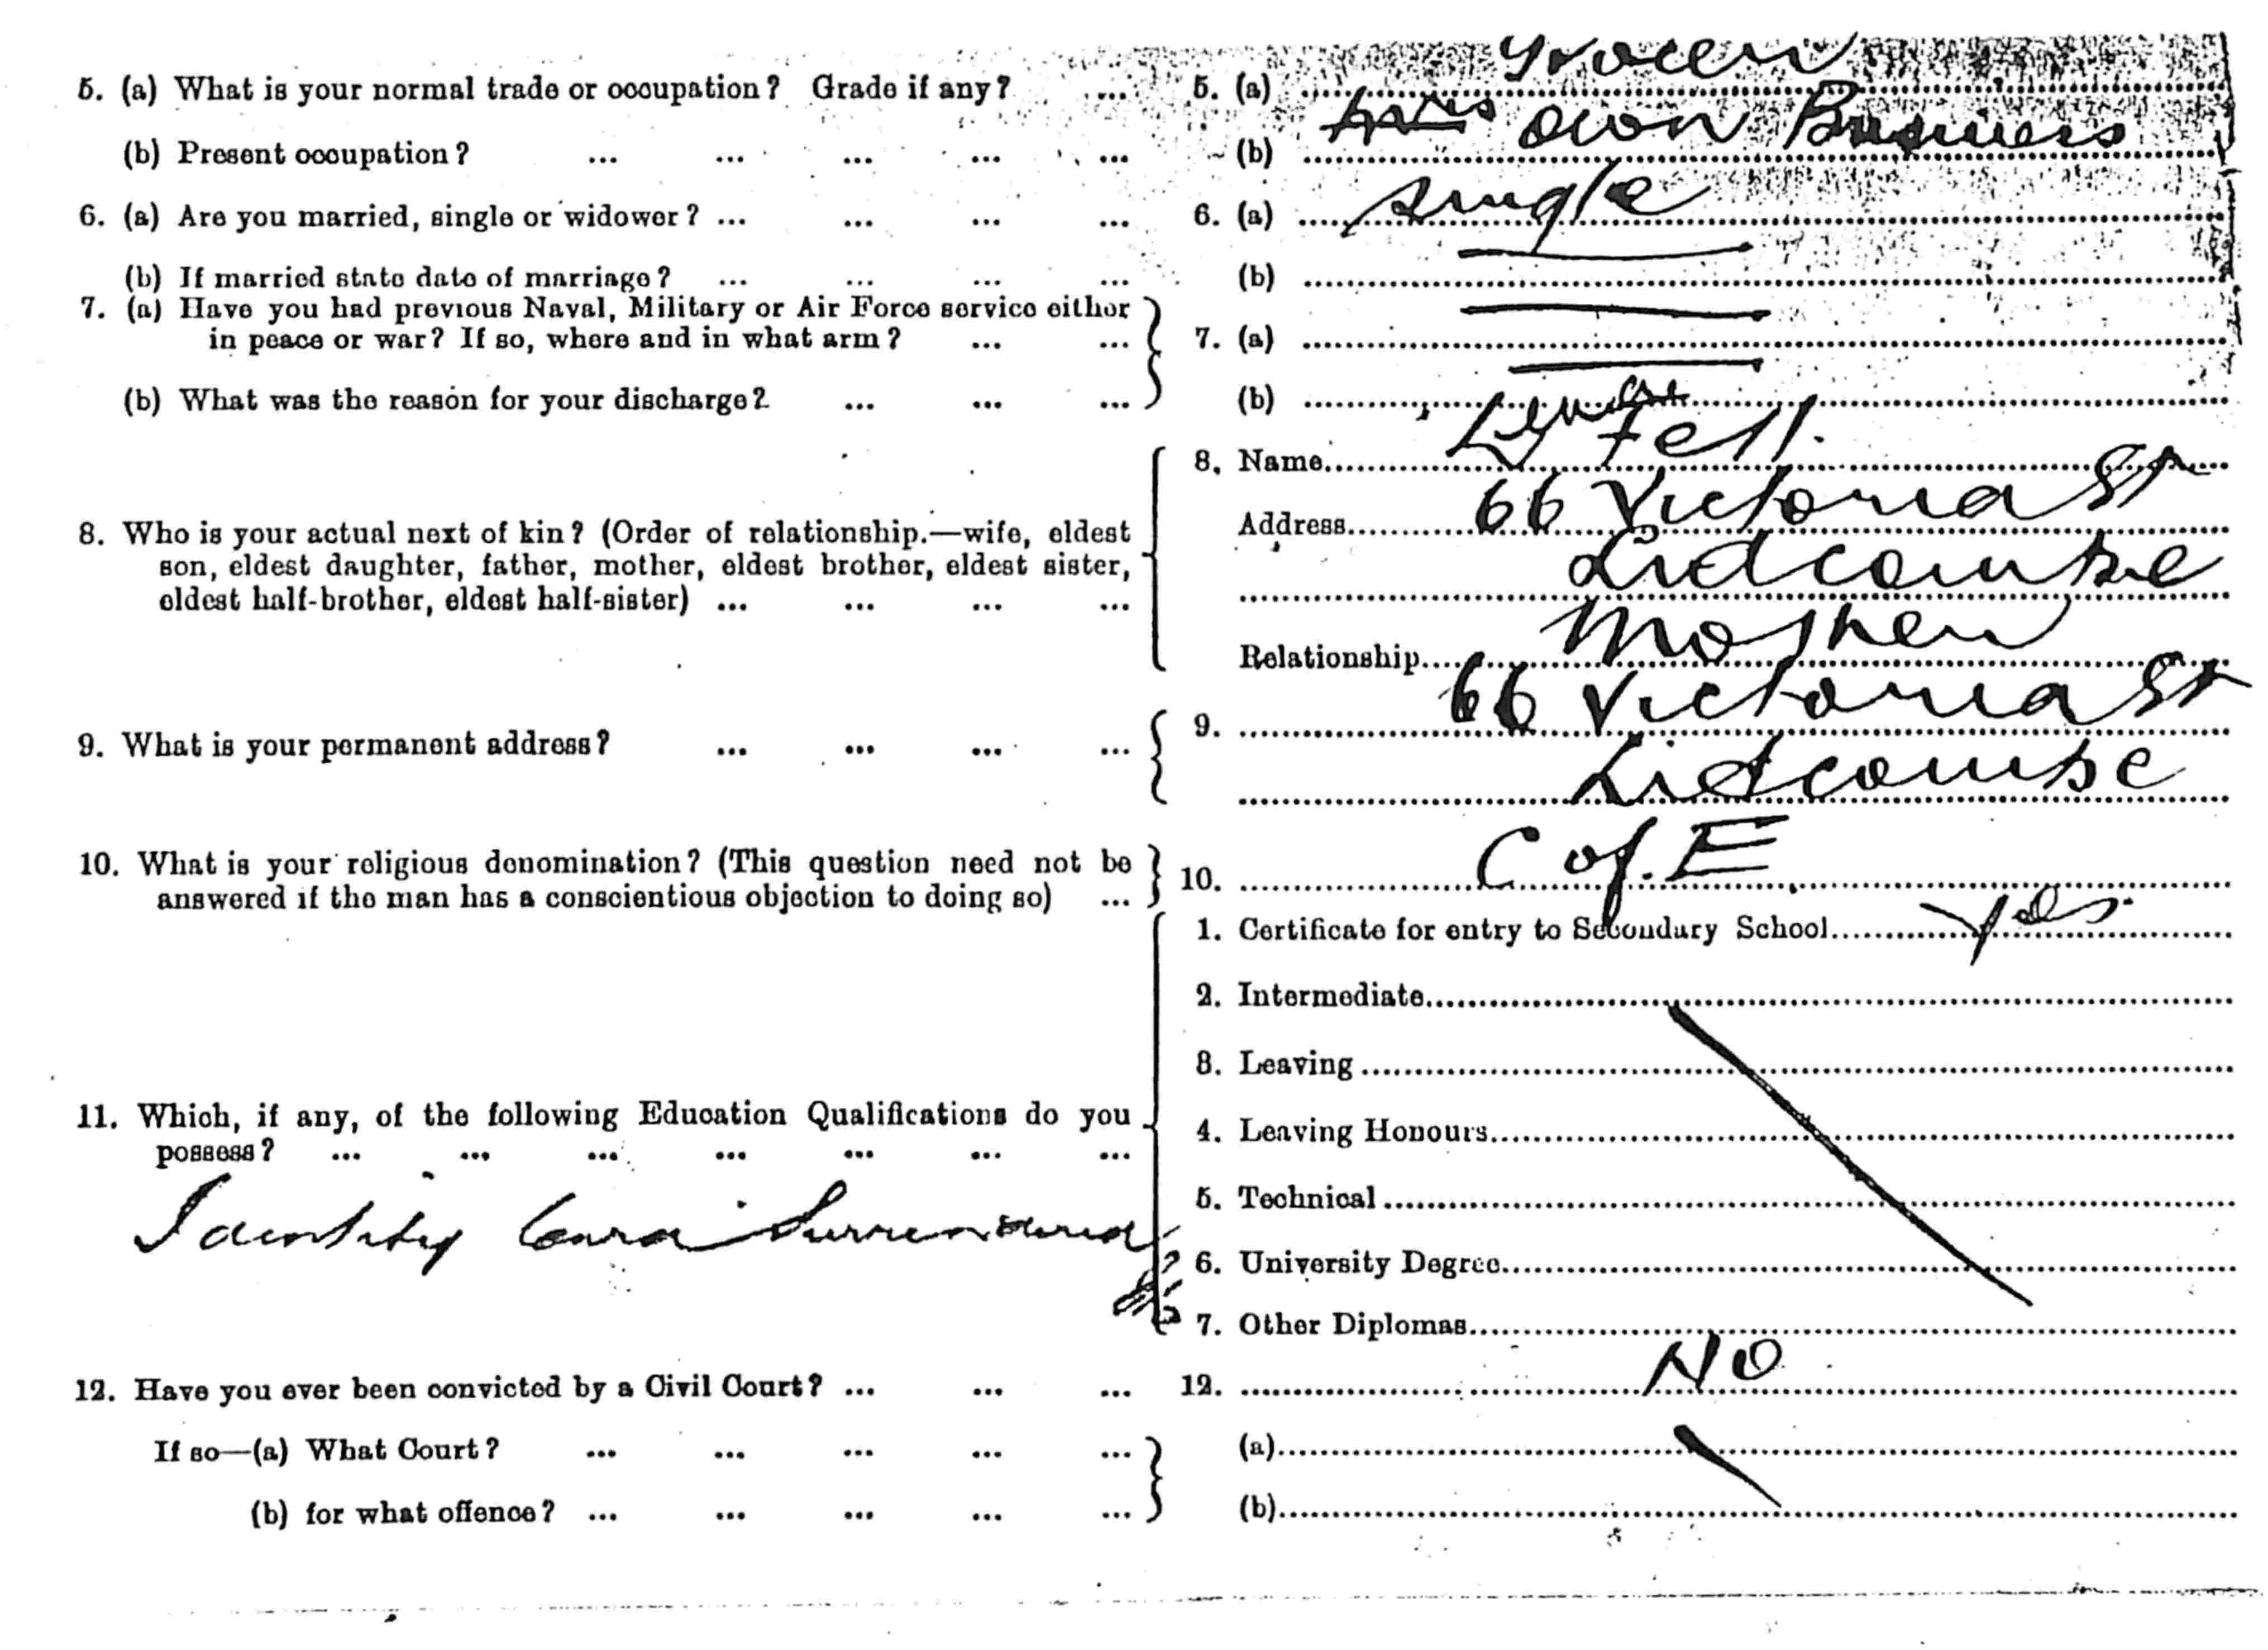 5. (a) What is your normal trade or occupation? Grade if any? ... 5. (a) Grocer
(b) Present occupation? ... ... ... ... ... (b) own Business
6. (a) Are you married, single or widower? ... ... ... ... 6. (a) single
(b) If married state date of marriage? ... ... ... ... (b)
7. (a) Have you had previous Naval, Military or Air Force service either
in peace or war? If so, where and in what arm? ... ... 7. (a)
(b) What was the reason for your discharge? ... ... ... (b)
8. Name Fell
Address 66 Victoria St
8. Who is your actual next of kin? (Order of relationship.—wife, eldest
son, eldest daughter, father, mother, eldest brother, eldest sister, Lidcombe
eldest half-brother, eldest half-sister) ... ... ... ...
Relationship Mother
9. What is your permanent address? ... ... ... ... 9. 66 Victoria St
Lidcombe
10. What is your religious denomination? (This question need not be
answered if the man has a conscientious objection to doing so) ... 10. C of E
1. Certificate for entry to Secondary School Yes
2. Intermediate
3. Leaving
11. Which, if any, of the following Education Qualifications do you
possess? ... ... ... ... ... ... ...
4. Leaving Honours
5. Technical
Identity Card Surrendered
6. University Degree
7. Other Diplomas
12. Have you ever been convicted by a Civil Court? ... ... ... 12. No
If so—(a) What Court? ... ... ... ... ... (a)
(b) for what offence? ... ... ... ... ... (b)